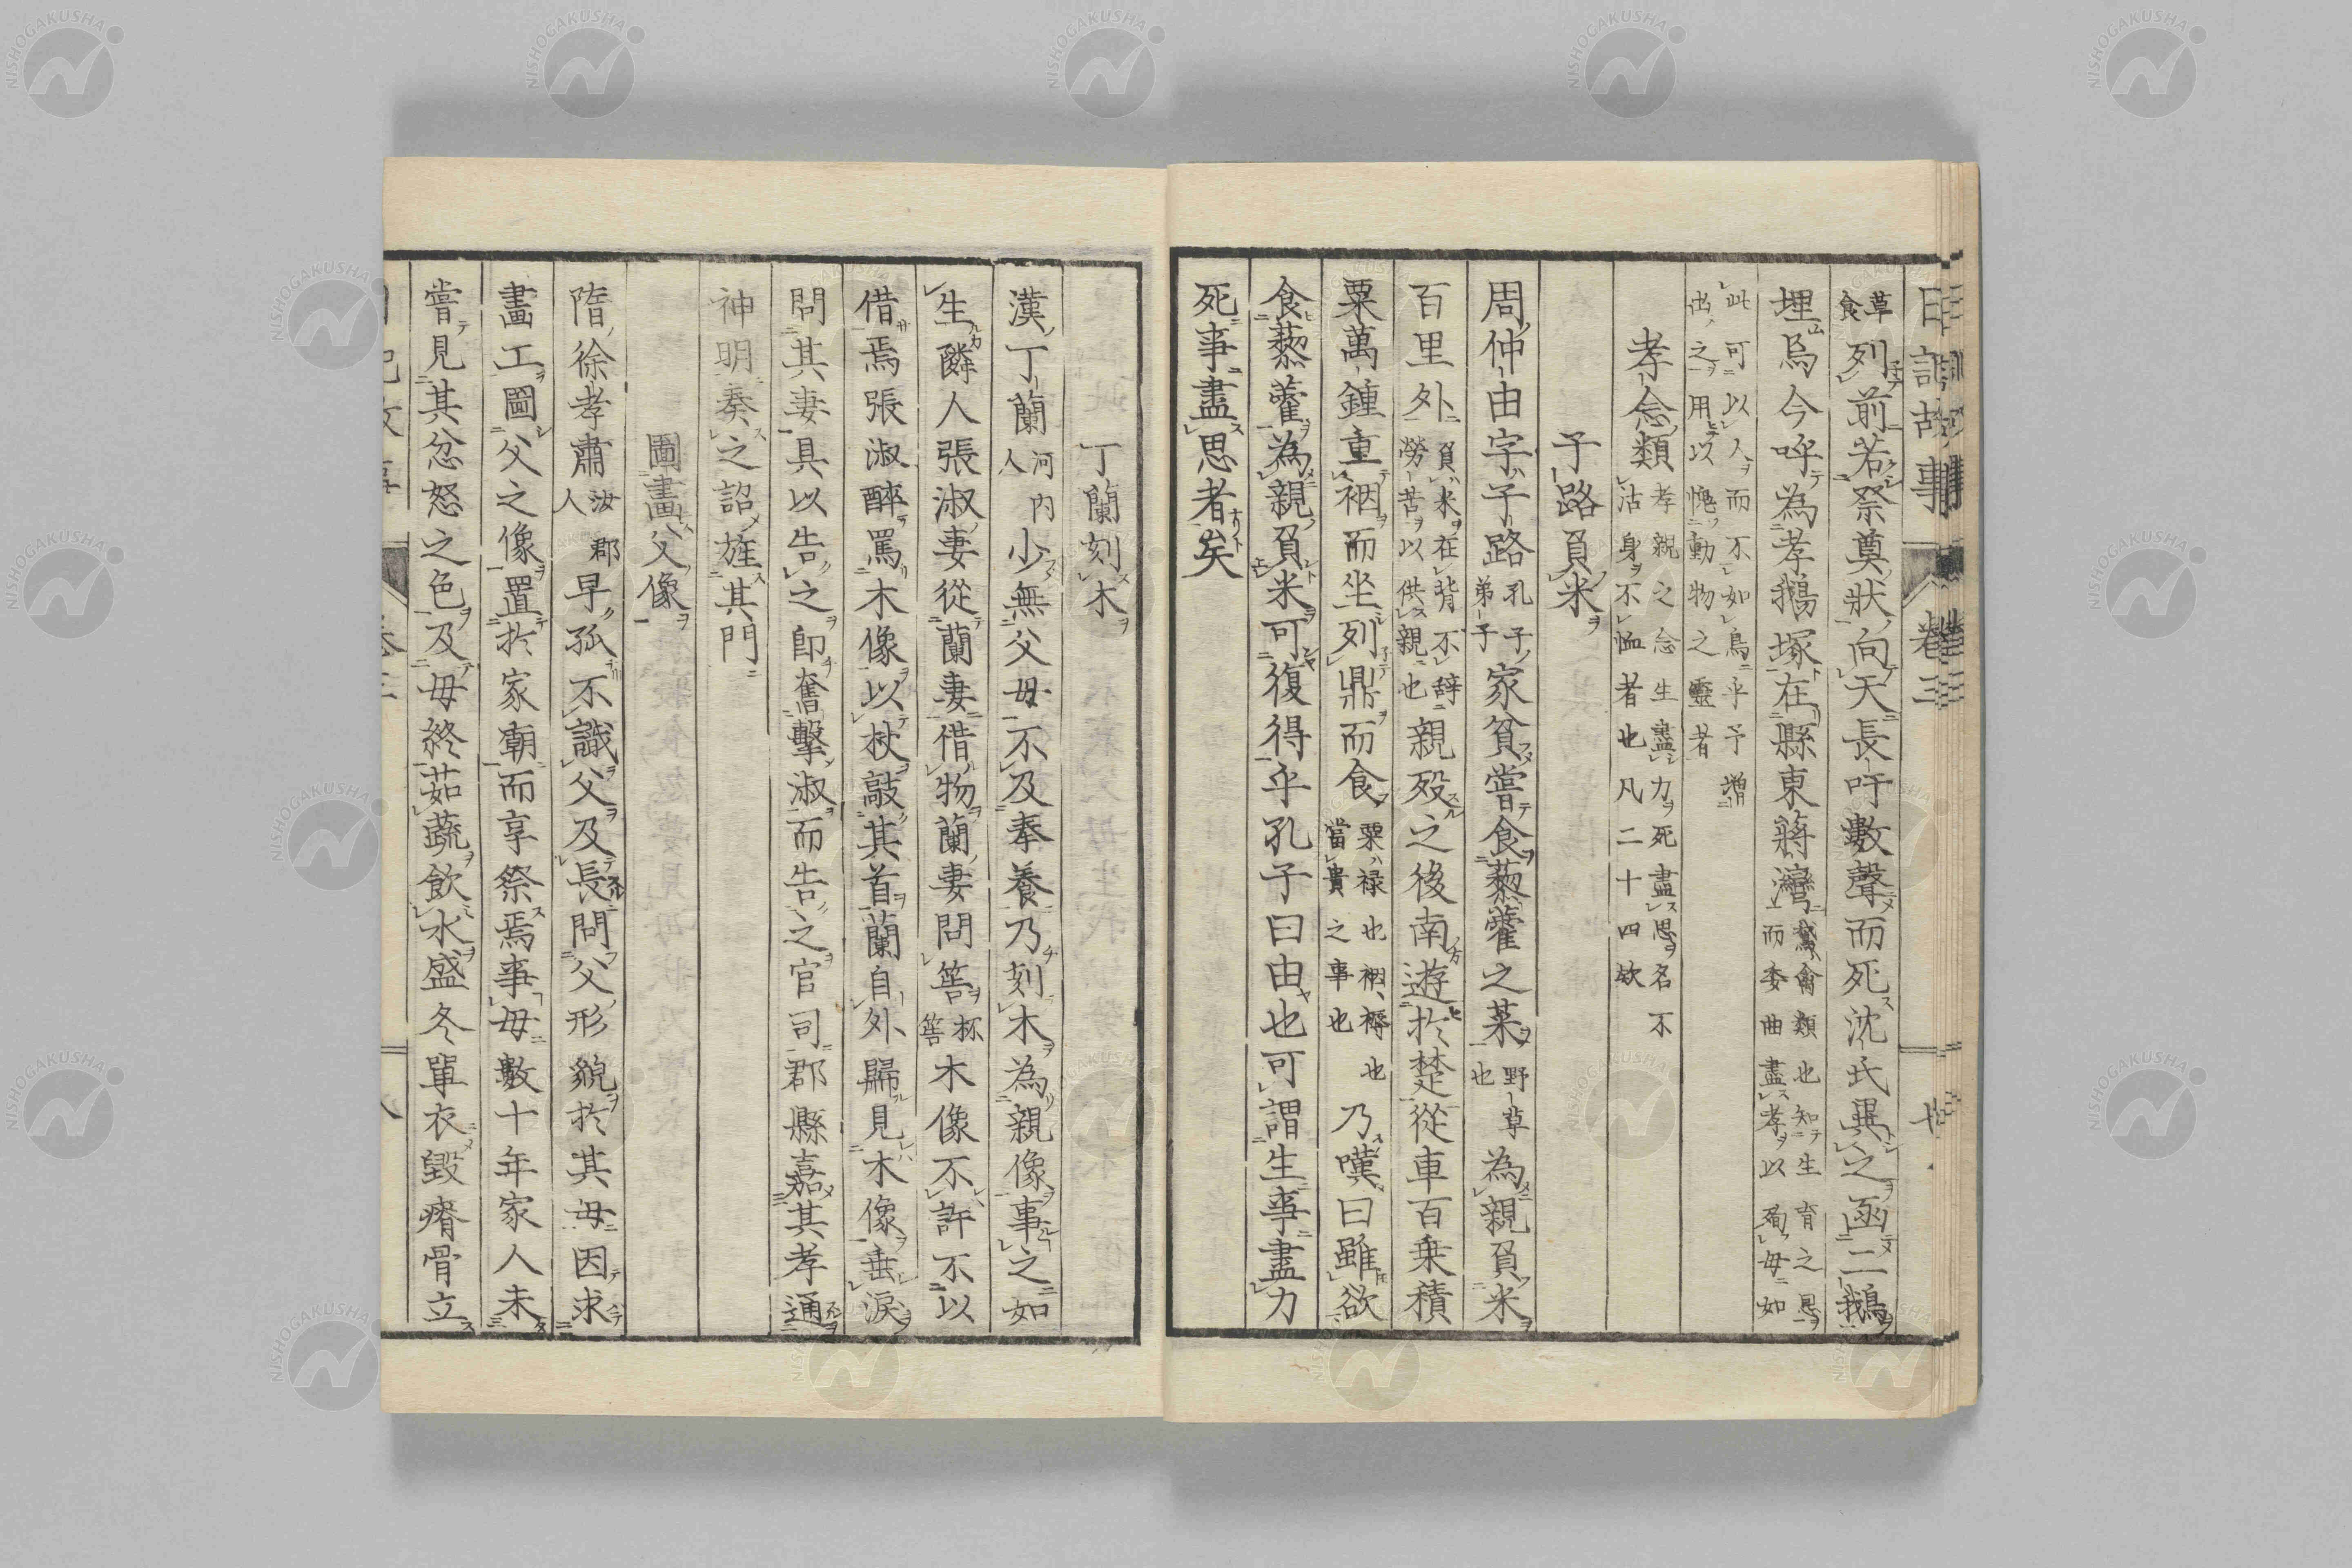 日記故事 卷三 七
草食列前若祭奠狀向天長吁數聲而死沈氏異之函二鵝
埋焉今呼為孝鵝塚在縣東蔣灣鵞禽類也知生育之恩而委曲盡孝以殉母如
此可以人而不如鳥乎予增出之用以愧動物之靈者
孝念類孝親之念生盡力死盡思名不沽身不恤者也凡二十四欵
子路負米
周仲由字子路孔子弟子家貧嘗食藜藿之菜野草也為親負米
百里外負米在背不辞勞苦以供親也親歿之後南遊於楚從車百乗積
粟萬鍾重裀而坐列鼎而食粟禄也裀褥也當貴之事也乃嘆曰雖欲
食藜藿為親負米可復得乎孔子曰由也可謂生事盡力
死事盡思者矣
丁蘭刻木
漢丁蘭河内人少無父母不及奉養乃刻木為親像事之如
生隣人張淑妻從蘭妻借物蘭妻問筶杯筶木像不許不以
借焉張淑醉罵木像以杖敲其首蘭自外歸見木像垂涙
問其妻具以告之卽奮擊淑而告之官司郡縣嘉其孝通
神明奏之詔旌其門
圖畫父像
隋徐孝肅汝郡人早孤不識父及長問父形貌於其母因求
畫工圖父之像置於家廟而享祭焉事母數十年家人未
嘗見其忿怒之色及母終茹蔬飲水盛冬單衣毀瘠骨立